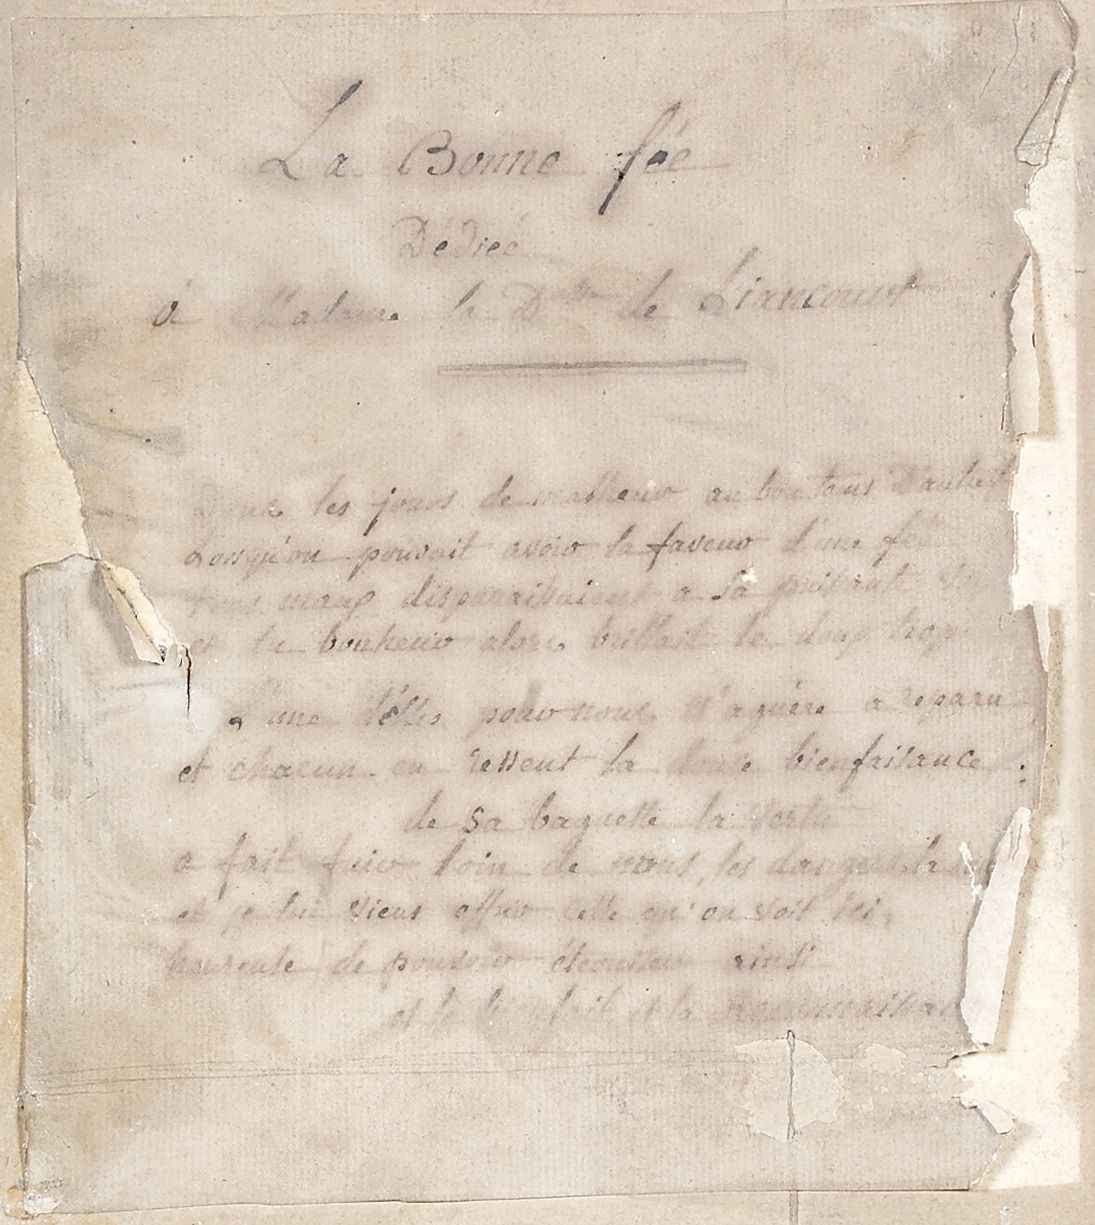 La Bonne fée
Dédieé
à Madame la D de Liancourt
les jours de malheur au bon tems
Lorsqu'on pouvait avoir la faveur d'une fée
maux disparaissaient a sa puissant
et le bonheur alors brillait le doux
L'une d'elles pour nous n'aguère a reparu
et chacun en ressent la douce bienfaisance
de sa baguette la vertu
a fait fuir loin de nous, les dangers, la
et je lui viens offrir celle qu'on voit ici,
heureuse de pouvoir ainsi
et le bienfait et la